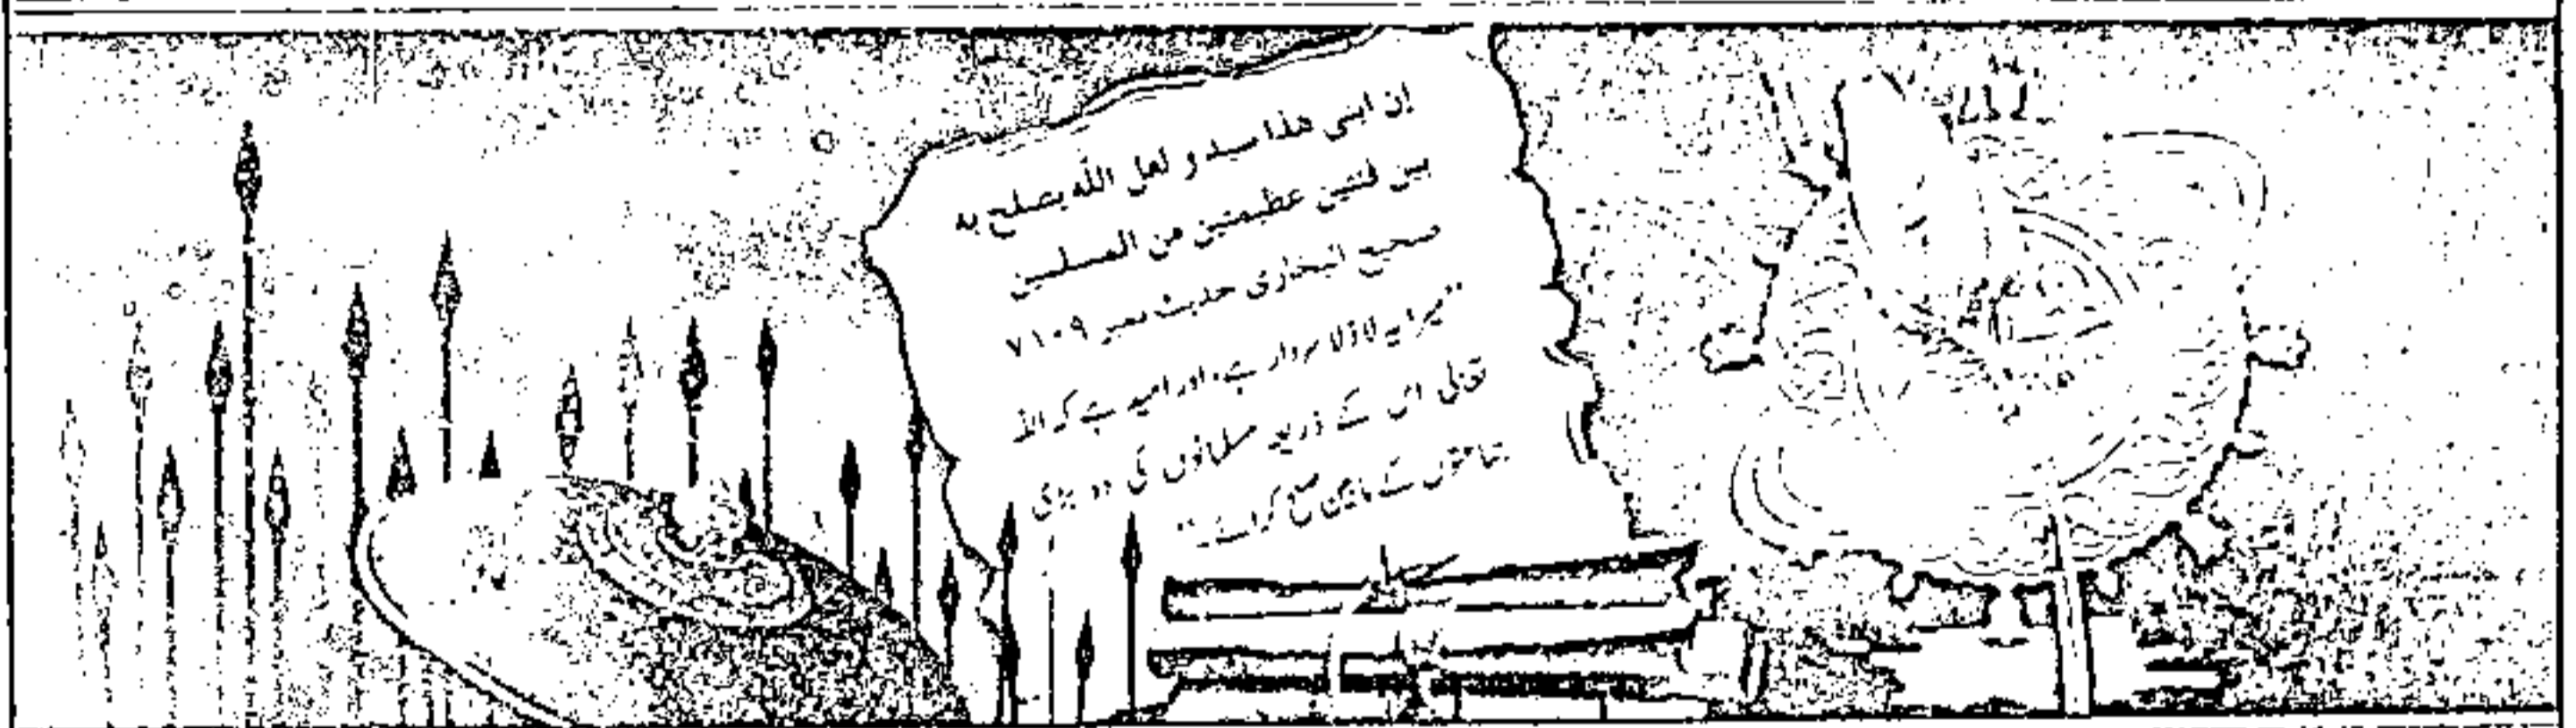 إن ابنی هذا سید و لعل الله یصلح به
بین فئتین عظیمتین من المسلمین
صحیح البخاری حدیث نمبر ۷۱۰۹
"میرا یہ لاڈلا سردار ہے، اور امید ہے کہ اللہ
تعالٰی اس کے ذریعہ مسلمانوں کی دو بڑی
جماعتوں کے مابین صلح کرائے"